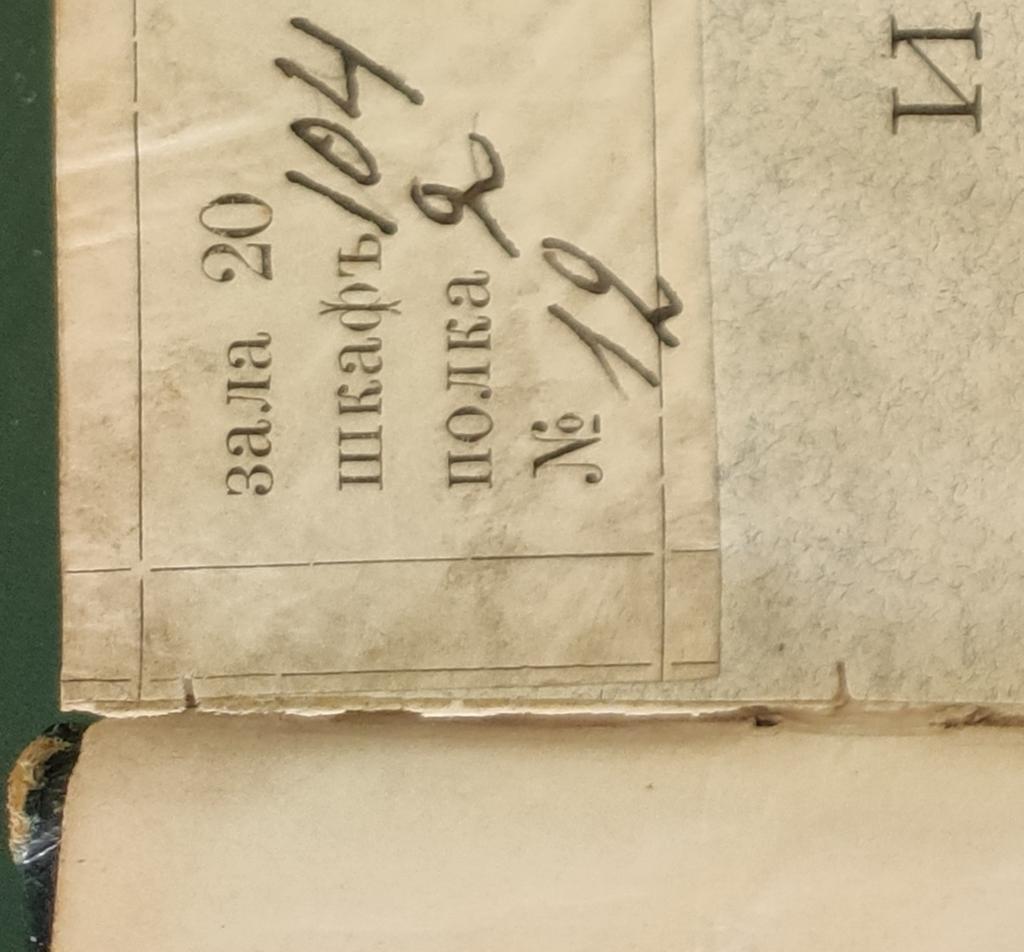 зала 20
шкафъ 104
полка 2
№ 12
И